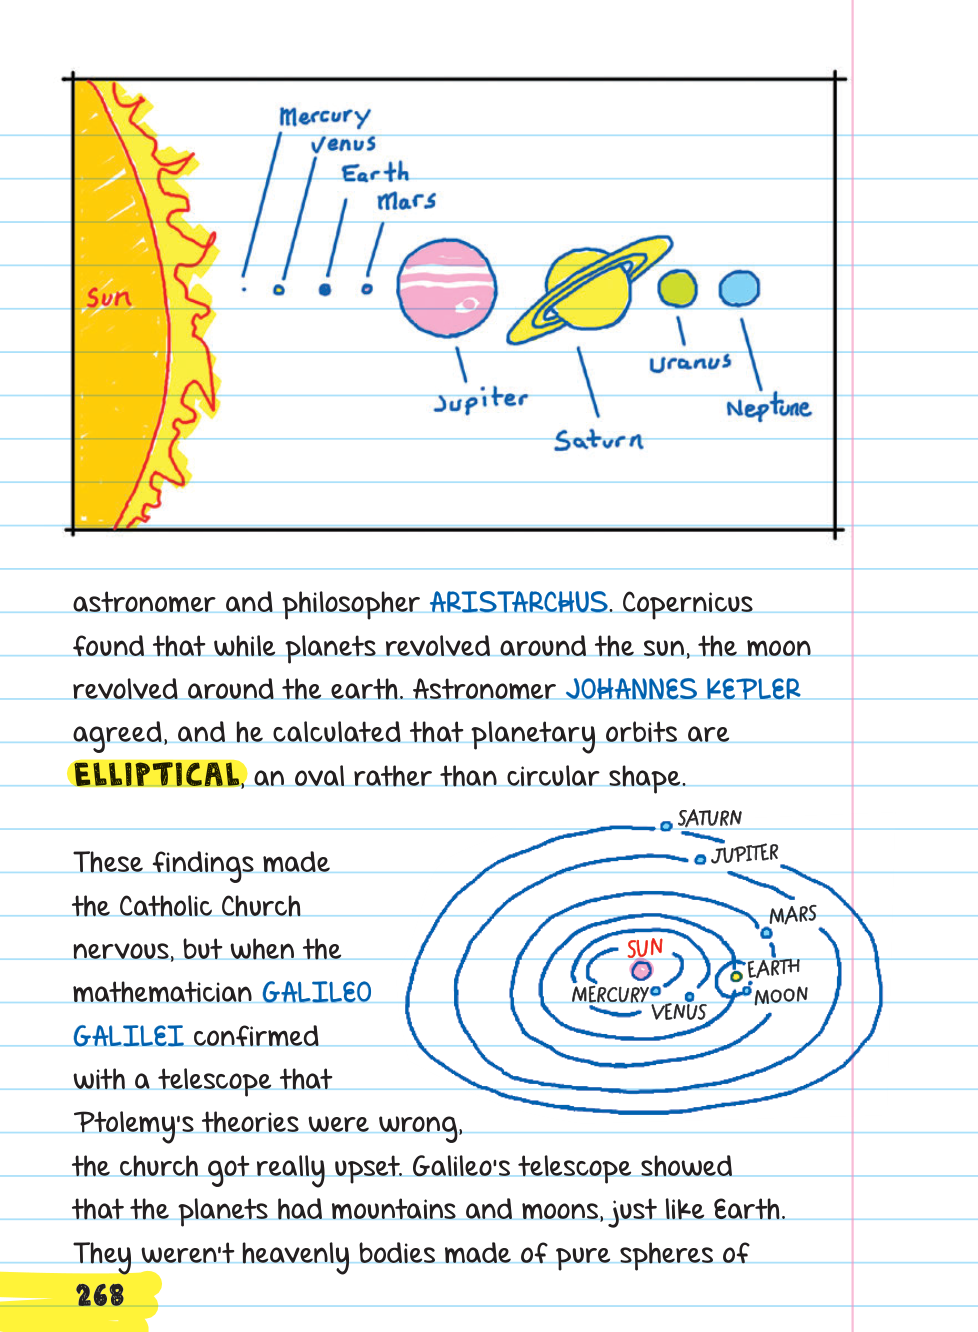 Mercury
Venus
Earth
Mars
Sun
Uranus
Jupiter
Neptune
Saturn
astronomer and philosopher ARISTARCHUS. Copernicus
found that while planets revolved around the sun, the moon
revolved around the earth. Astronomer JOHANNES KEPLER
agreed, and he calculated that planetary orbits are
ELLIPTICAL, an oval rather than circular shape.
These findings made
the Catholic Church
nervous, but when the
mathematician GALILEO
GALILEI confirmed
with a telescope that
Ptolemy's theories were wrong,
the church got really upset. Galileo's telescope showed
that the planets had mountains and moons, just like Earth.
They weren't heavenly bodies made of pure spheres of
SATURN
JUPITER
MARS
SUN
EARTH
MERCURY
MOON
VENUS
268